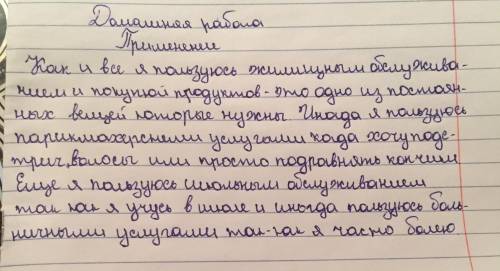 Домашняя работа
Применение
Как и все я пользуюсь жилищным обслужива-
нием и покупкой продуктов - это одно из постоян-
ных вещей которые нужны. Иногда я пользуюсь
парикмахерскими услугами када хочу подс-
тричь волосы или просто подравнять кончики
Еще я пользуюсь школьным обслуживанием
так как я учусь в школе и иногда пользуюсь боль-
ничными услугами так-как я часто болею.